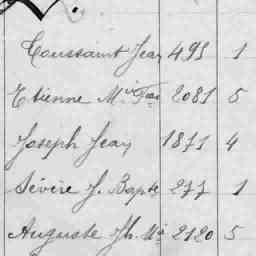 Toussaint Jean 495 1
Etienne Mie Fse 2081 5
Joseph Jean 1871 4
Sévère J. Bapte 277 1
Auguste Jh. Mie 2120 5